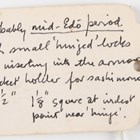 bably mid-Edō period.
h small 'hinged' locks
r inserting into the armo
eket holder for sashimono
½" 1⅛" square at widest
point near 'hinge'.